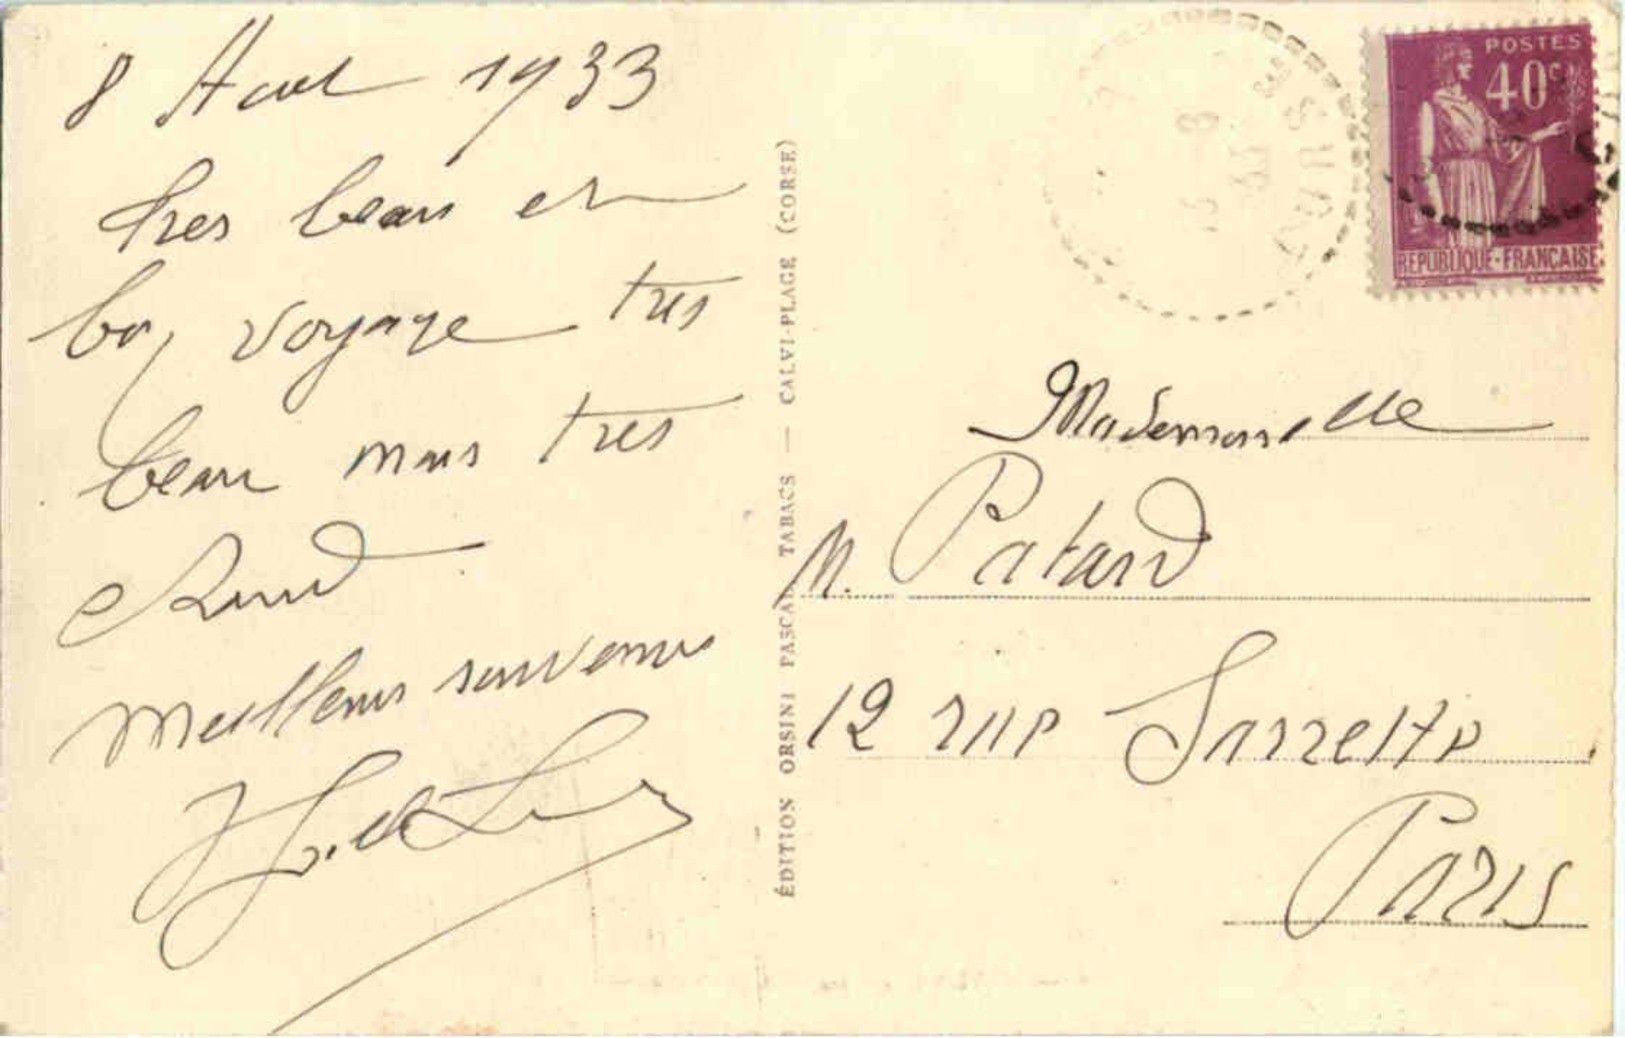 8 Aout 1933
tres beau et
bon voyage tres
beau mais tres
chaud
Meilleurs souvenirs
ÉDITION ORSINI PASCAL TABACS — CALVI-PLAGE (CORSE)
POSTES
40c
REPUBLIQUE-FRANÇAISE
13 - 8
33
Mademoiselle
M. Patard
12 rue Sarrette
Paris